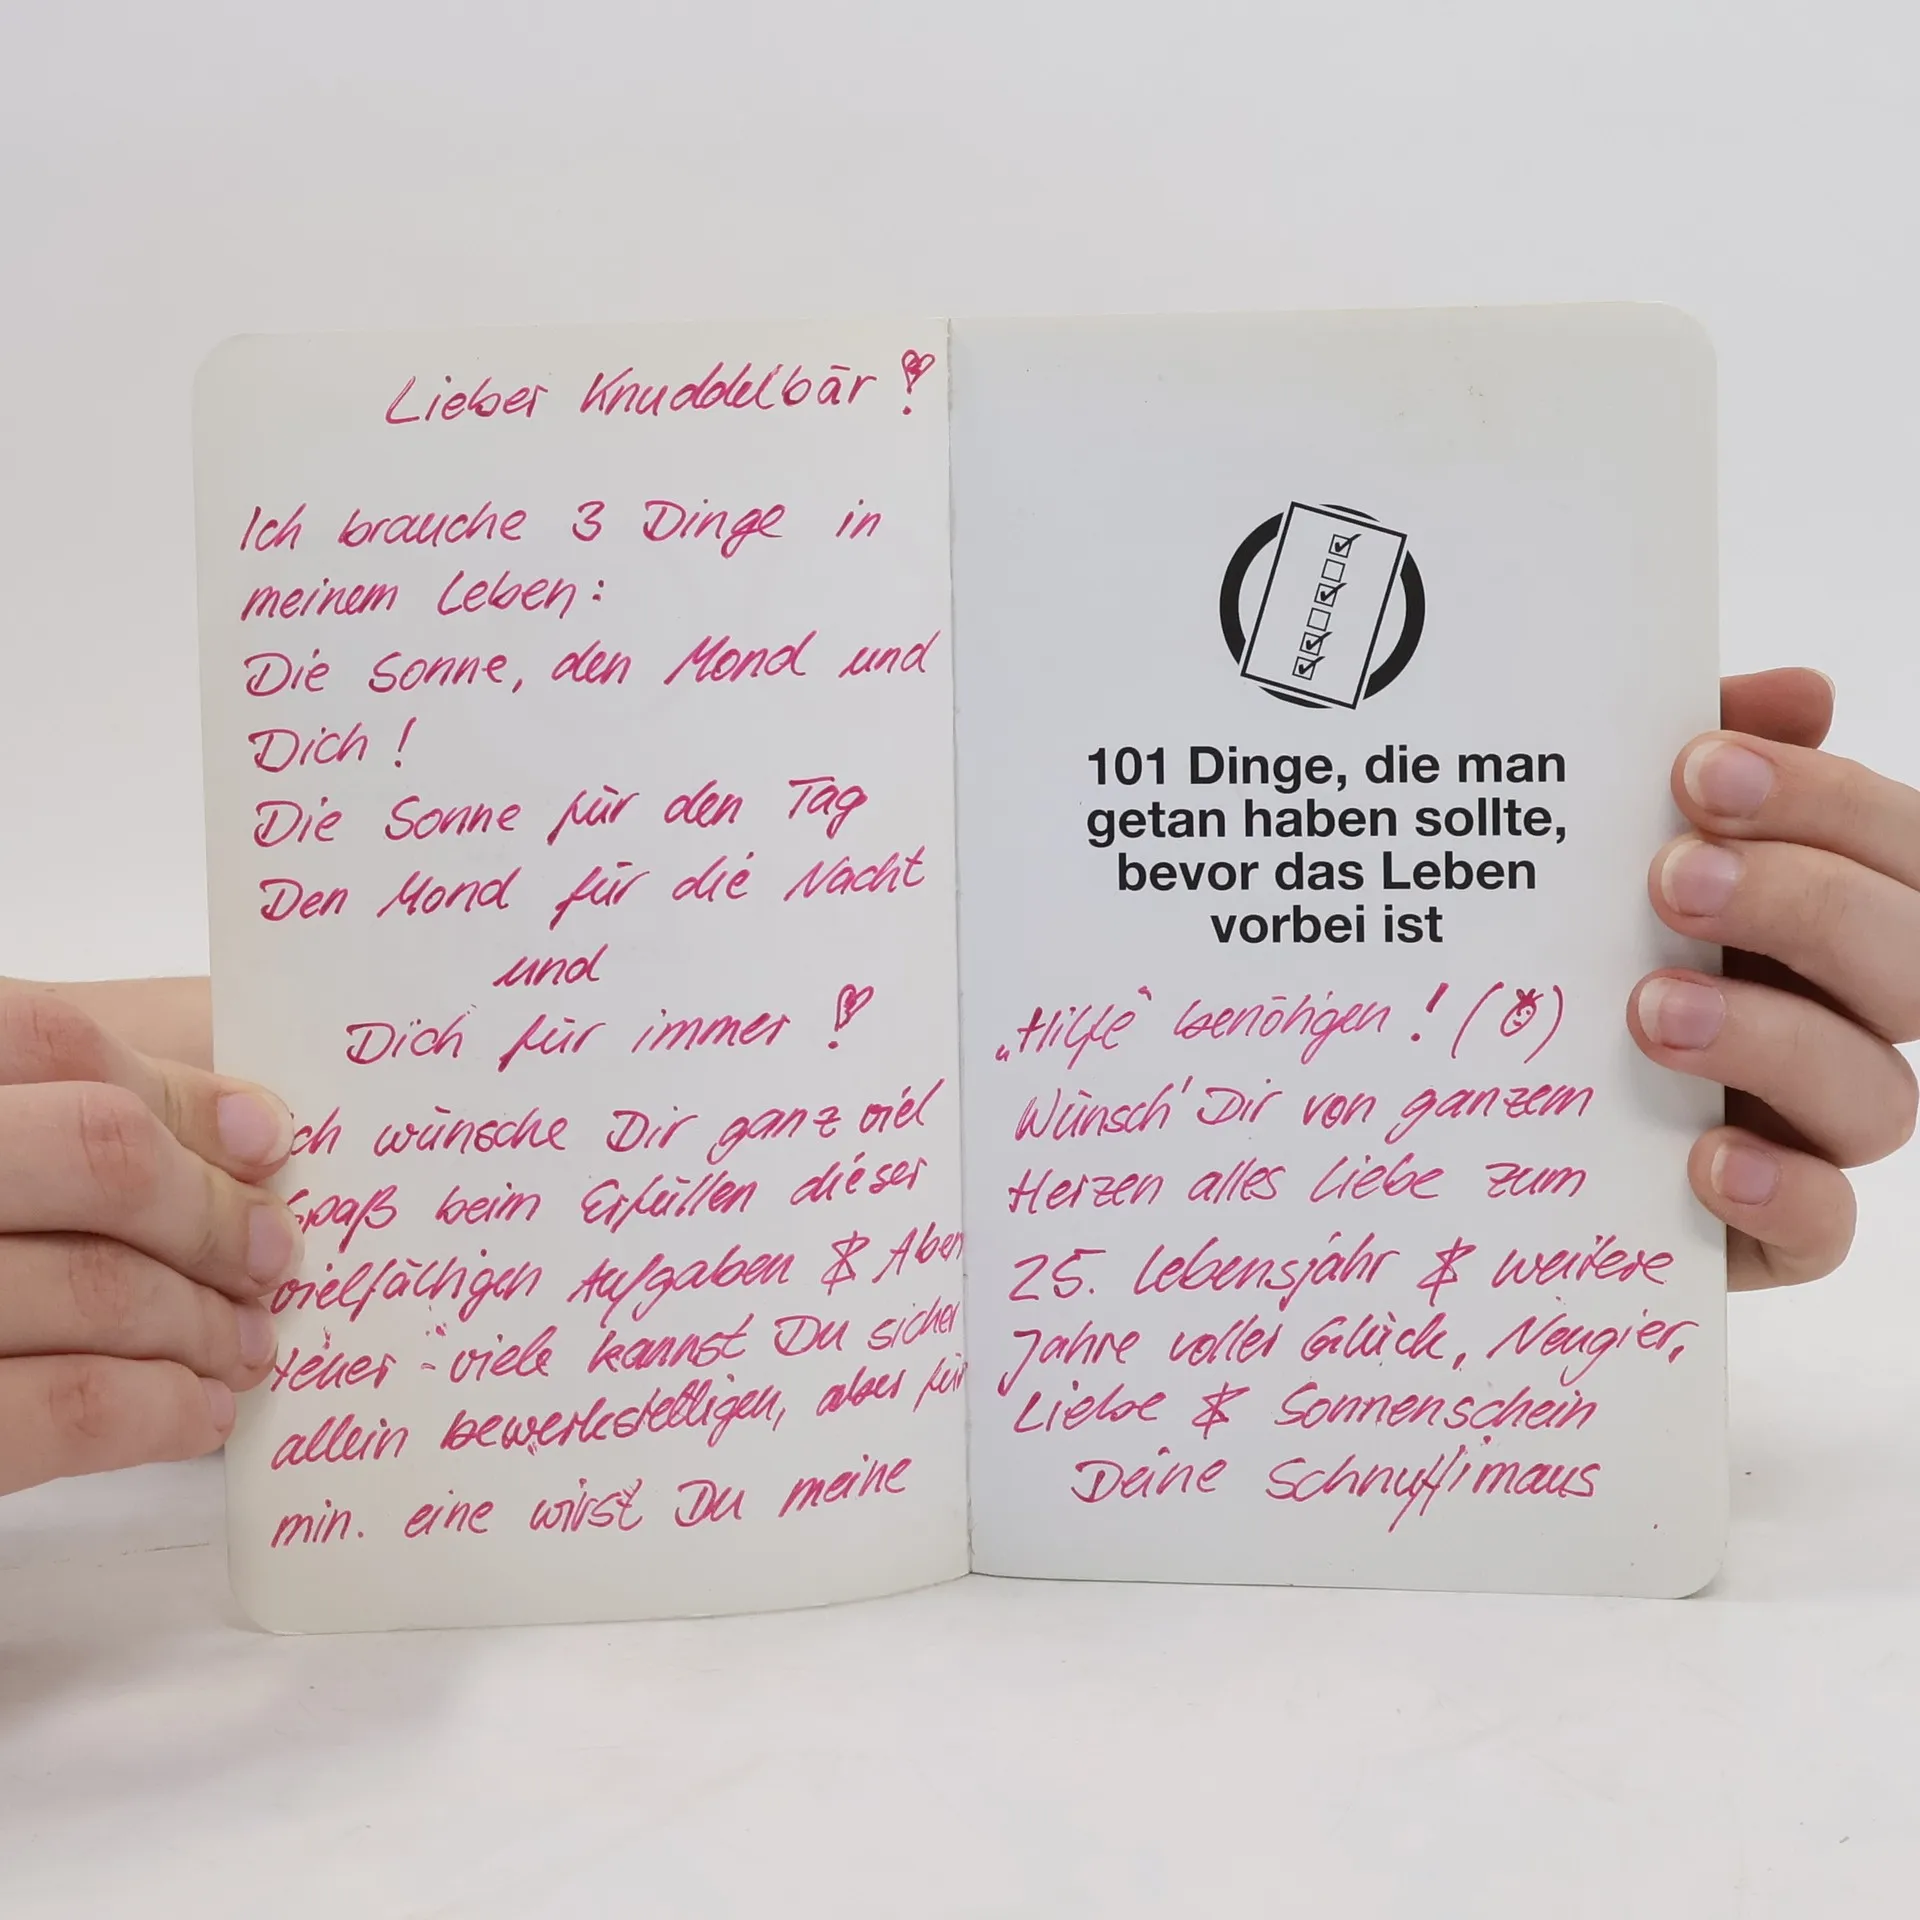 Lieber Knuddelbär!
Ich brauche 3 Dinge in
meinem Leben:
Die Sonne, den Mond und
Dich!
Die Sonne für den Tag
Den Mond für die Nacht
und
Dich für immer!
ich wünsche Dir ganz viel
Spaß beim Erfüllen dieser
vielfältigen Aufgaben & Aben
teuer - viele kannst Du sicher
allein bewerkstelligen, aber für
min. eine wirst Du meine
101 Dinge, die man
getan haben sollte,
bevor das Leben
vorbei ist
„Hilfe“ benötigen! ( )
Wünsch' Dir von ganzem
Herzen alles Liebe zum
25. Lebensjahr & weitere
Jahre voller Glück, Neugier,
Liebe & Sonnenschein
Deine Schnuffimaus